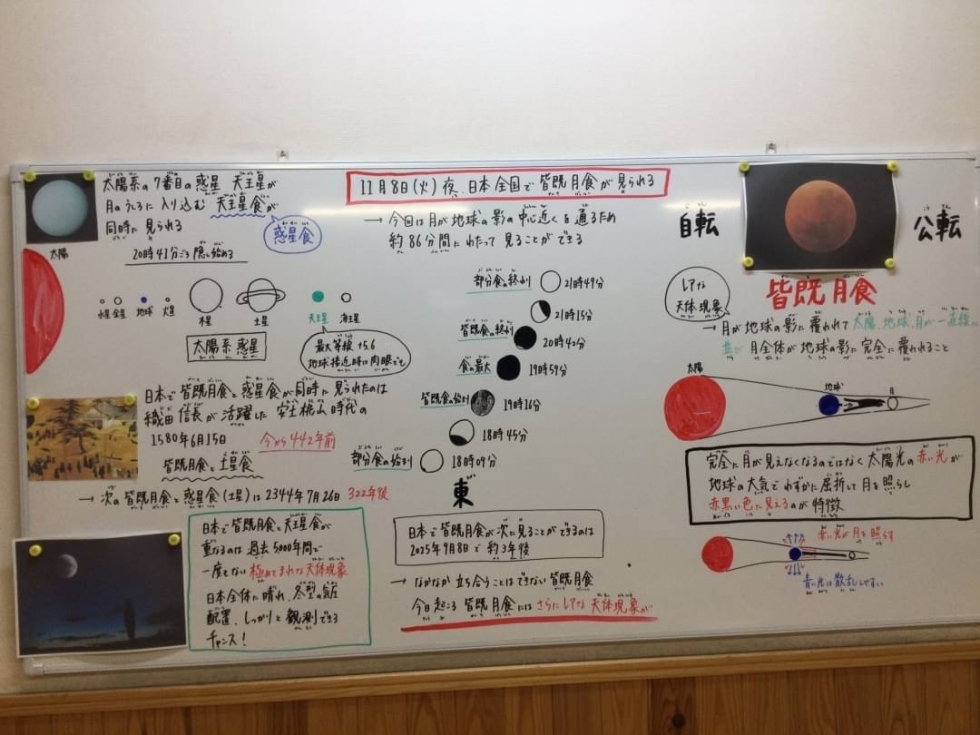 太陽系の7番目の惑星 天王星が
月のうしろに入り込む 天王星食が
同時に見られる
惑星食
20時41分ごろ隠し始める
太陽
水星 金星 地球 火星 木星 土星 天王星 海王星
太陽系惑星
最大等級+5.6
地球接近時には肉眼でも
日本で皆既月食と惑星食が同時に見られたのは
織田信長が活躍した安土桃山時代の
1580年6月15日 今から442年前
皆既月食と土星食
→ 次の皆既月食と惑星食(土星)は2344年7月26日 322年後
日本で皆既月食と天王星食が
重なるのは過去5000年間で
一度もない極めてまれな天体現象
日本全体に晴れ、冬型の気圧
配置、しっかりと観測できる
チャンス!
11月8日(火)夜、日本全国で皆既月食が見られる
→ 今回は月が地球の影の中心近くを通るため
約86分間にわたって見ることができる
部分食の終わり 21時49分
21時15分
皆既食の終わり 20時42分
食の最大 19時59分
皆既食の始め 19時16分
18時45分
部分食の始め 18時09分
東
日本で皆既月食が次に見ることができるのは
2025年9月8日で約3年後
→ なかなか立ち会うことはできない皆既月食
今日起こる皆既月食にはさらにレアな天体現象が
自転
公転
皆既月食
レアな
天体現象
→ 月が地球の影に覆われて太陽、地球、月が一直線に
並び月全体が地球の影に完全に覆われること
太陽 地球 月
完全に月が見えなくなるのではなく太陽光の赤い光が
地球の大気でわずかに屈折して月を照らし
赤黒い色に見えるのが特徴
赤い光が月を照らす
青い光は散乱しやすい